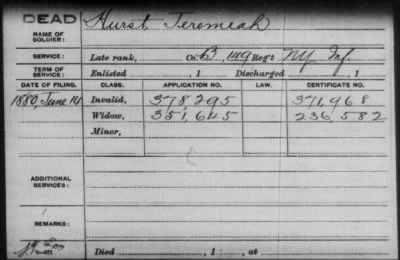 DEAD
NAME OF SOLDIER: Hurst Jeremiah
SERVICE: Late rank, Co. B, 149 Reg't NY Inf.
TERM OF SERVICE: Enlisted , 1 Discharged , 1
DATE OF FILING. CLASS. APPLICATION NO. LAW. CERTIFICATE NO.
1880, June 14 Invalid, 378295 371,968
Widow, 351,645 236,582
Minor,
ADDITIONAL SERVICES:
REMARKS:
Died , 1 , at